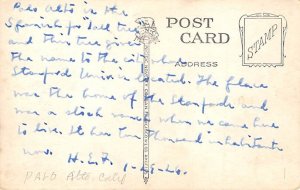 Palo Alto is the
Spanish for "tall tree"
and this tree gives
the name to the city where
Stanford Univ is located. The place
was the home of the Stanfords and
was a stock ranch when we came here
to live. It has ten thousand inhabitants
now. H.E.F. 1-26-26.
POST CARD
ADDRESS
STAMP
PALO Alto. Calif